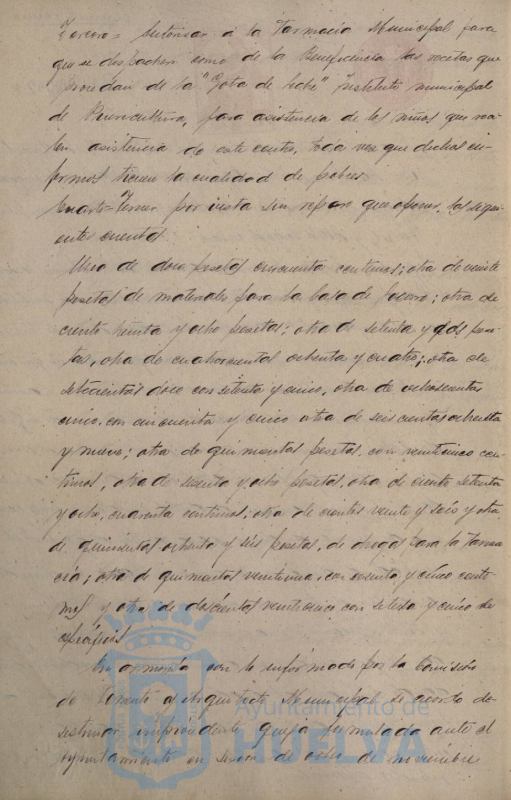 Tercero = Autorizar á la Farmacia Municipal para
que se despachen como de la Beneficencia las recetas que
procedan de la "Gota de leche" Instituto municipal
de Puericultura, para asistencia de los niños que
asistencia de este centro, toda vez que dichos en-
fermos tienen la cualidad de pobres
Cuarto = Tener por vista sin reparo que oponer, las siguí-
entes cuentas.
Una de doce pesetas cincuenta centimos; otra de veinte
pesetas de materiales para la casa de socorro; otra de
ciento treinta y ocho pesetas; otra de setenta y dos pese-
tas, otra de cuatrocientas ochenta y cuatro; otra de
setecientas doce con setenta y cinco, otra de ochocientas
cinco con cincuenta y cinco otra de seiscientas ochenta
y nueve; otra de quinientas pesetas con veinticinco cen-
timos, otra de sesenta y ocho pesetas, otra de ciento setenta
y ocho, cuarenta centimos; otra de cientos veinte y seis y otra
de quinientas ochenta y seis pesetas, de drogas para la farma-
cia; otra de quinientas veintiuna, con y cinco centi-
mos y otra de doscientas veinticinco con setenta y cinco de
especificos
En armonia con lo informado por la Comisión
de Fomento y Arquitecto Municipal se acordo de-
sestimar improcedente queja formulada ante el
Ayuntamiento en sesion de ocho de noviembre
Ayuntamiento de
HUELVA